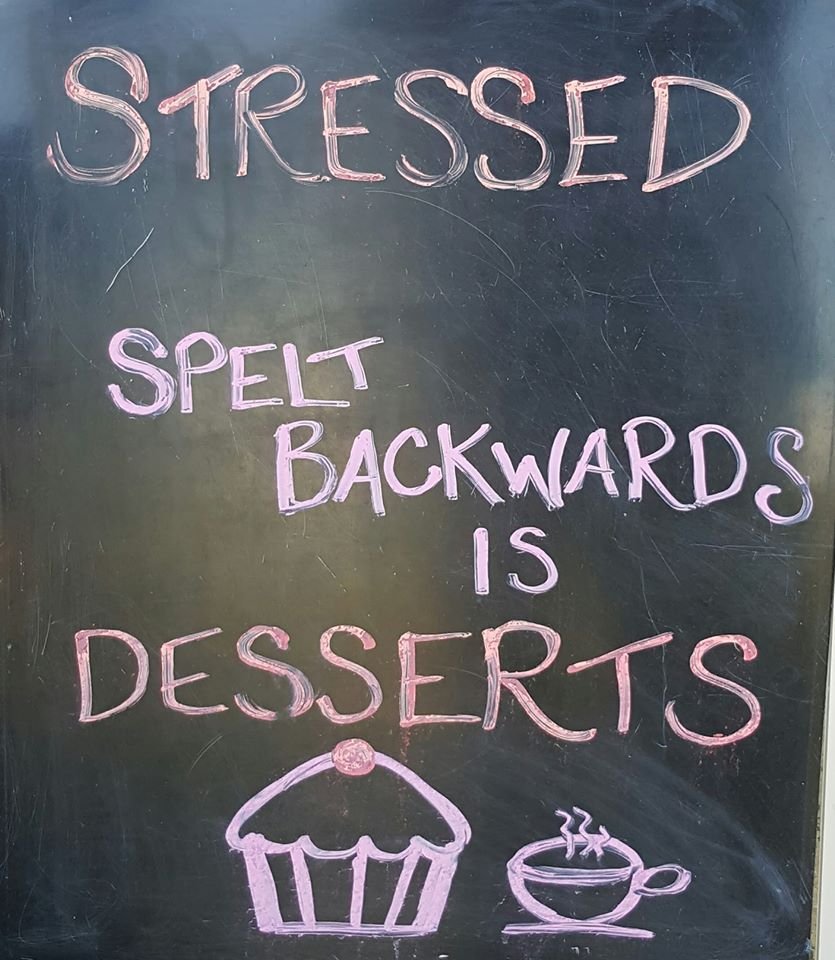 STRESSED
SPELT
BACKWARDS
IS
DESSERTS